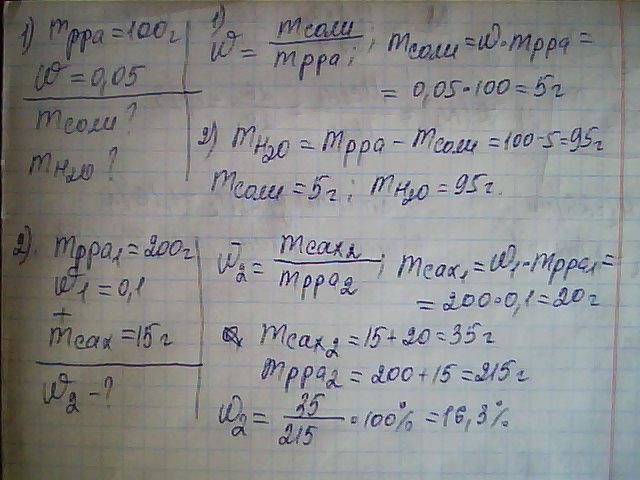 1) mрра = 100г
W = 0,05
mсоли?
mH₂O?
1) W = mсоли / mрра; mсоли = W·mрра =
= 0,05·100 = 5г
2) mH₂O = mрра - mсоли = 100-5=95г
mсоли = 5г; mH₂O = 95г.
2). mрра₁ = 200г
W₁ = 0,1
+
mсах = 15г
W₂ - ?
W₂ = mсах₂ / mрра₂; mсах₁ = W₁·mрра₁ =
= 200·0,1 = 20г
mсах₂ = 15+20 = 35г
mрра₂ = 200+15 = 215г
W₂ = 35 / 215 · 100% = 16,3%